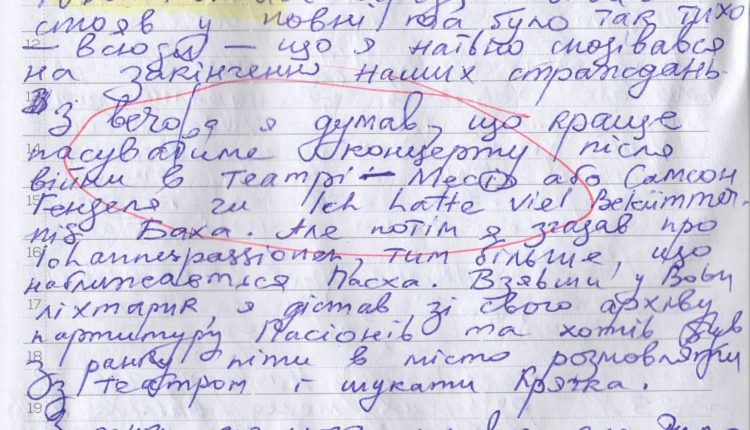 стояв у повні та було так тихо
— всюди — що я наївно сподівався
на закінчення наших страждань.
З вечора я думав, що краще
пасуватиме концерту після
війни в театрі — Месія або Самсон
Генделя чи Ich hatte viel Bekümmer-
nis Баха. Але потім я згадав про
Johannespassionen, тим більше, що
наближається Пасха. Взявши у Вови
ліхтарик, я дістав зі свого архіву
партитуру Пасіонів та хотів був
з ранку піти в місто розмовляти
з театром і шукати Крячка.